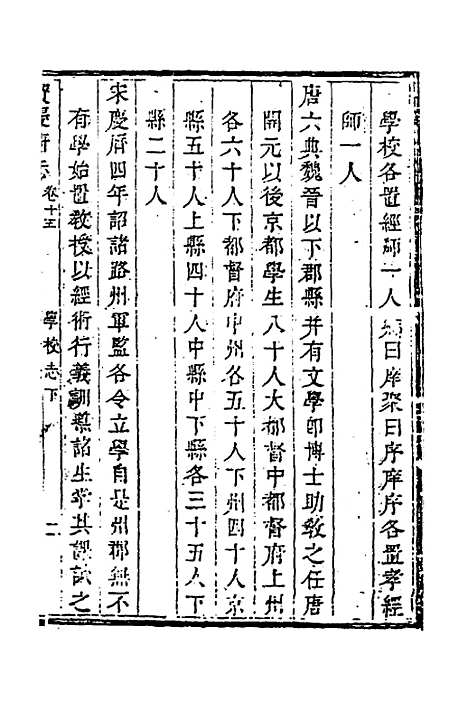 學校各置經師一人鄉曰庠聚曰序庠序各置孝經
師一人
唐六典魏晉以下郡縣并有文學卽博士助敎之任唐
開元以後京都學生八十人大都督中都督府上州
各六十人下都督府中州各五十人下州四十人京
縣五十人上縣四十人中縣中下縣各三十五人下
縣二十人
宋慶厯四年詔諸路州軍監各令立學自是州郡無不
有學始置敎授以經術行義訓導諸生掌其課試之
寶慶府志 卷十三 學校志下 二